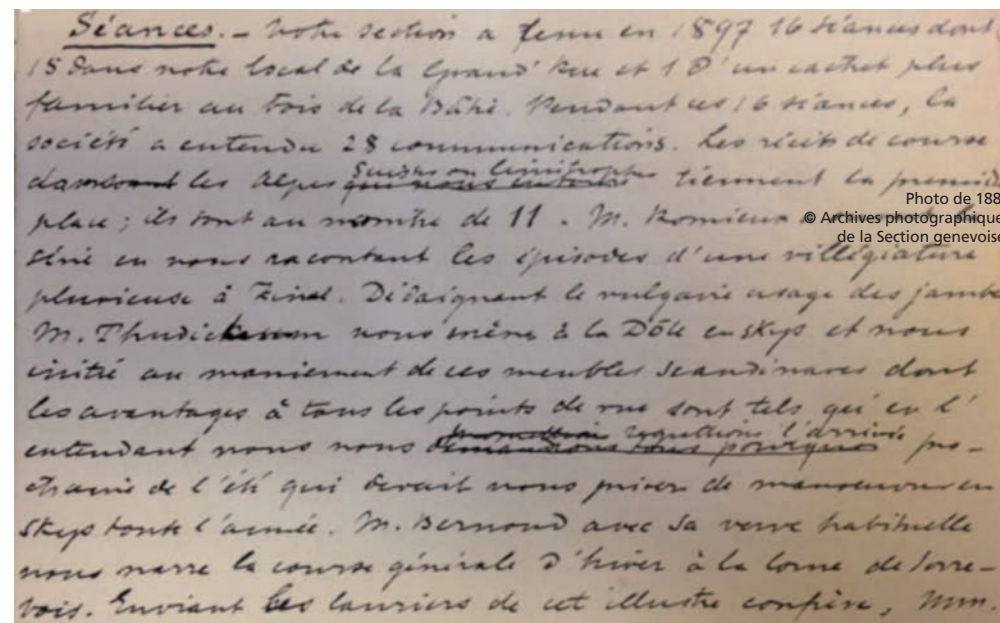 Séances. – Notre section a tenu en 1897 16 séances dont
15 dans notre local de la Grand' Rue et 1 d'un cachet plus
familier au bois de la Bâtie. Pendant ces 16 séances, la
société a entendu 28 communications. Les récits de course
dans les Alpes Suisses ou limitrophes tiennent la premiè
place ; ils sont au nombre de 11. M. Romieux
série en nous racontant les épisodes d'une villégiature
pluvieuse à Zinal. Dédaignant le vulgaire usage des jambe
M. Thudichum nous mène à la Dôle en skys et nous
initie au maniement de ces meubles scandinaves dont
les avantages à tous les points de vue sont tels qu'en l'
entendant nous nous regrettions l'arrivée pro-
chaine de l'été qui devait nous priver de manoeuvrer en
skys toute l'année. M. Bernoud avec sa verve habituelle
nous narre la course générale d'hiver à la
Enviant les lauriers de cet illustre confrère, MM.
Photo de 188
© Archives photographique
de la Section genevoise